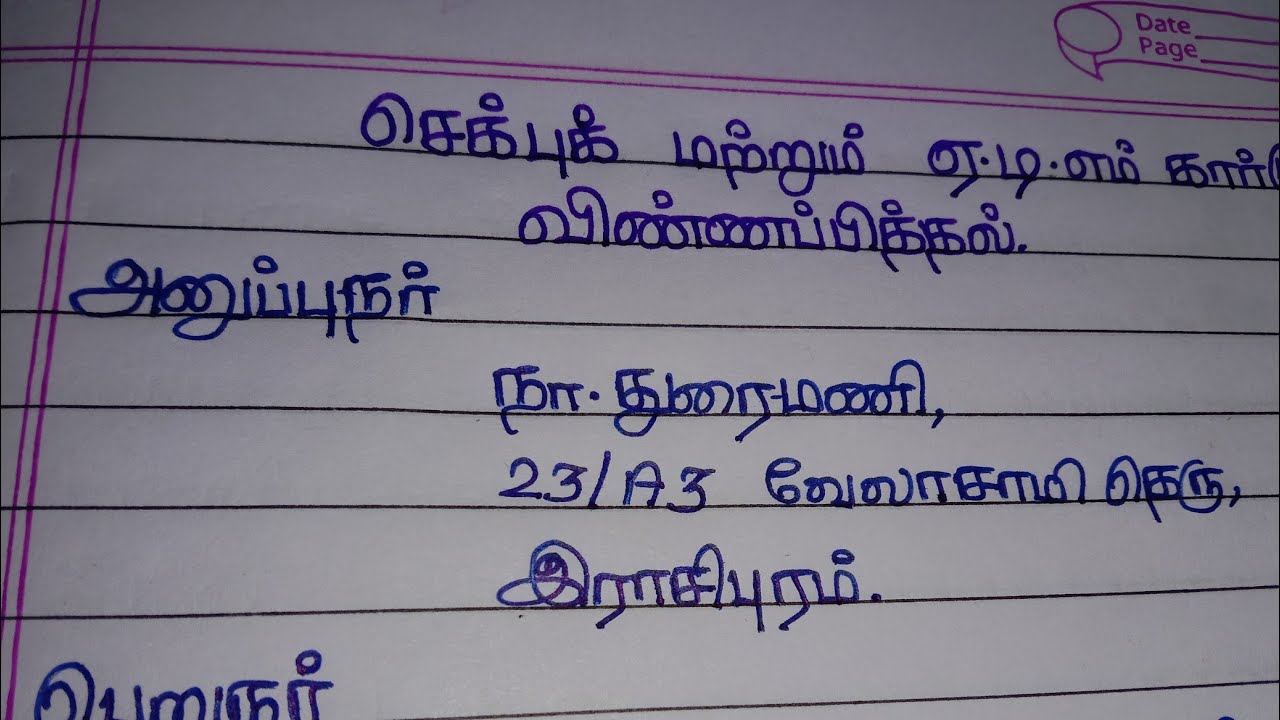 Date
Page
செக்புக் மற்றும் ஏ.டி.எம் கார்டு
விண்ணப்பித்தல்.
அனுப்புநர்
நா. துரைமணி,
23/A3 வேலாசாமி தெரு,
இராசிபுரம்.
பெறுநர்